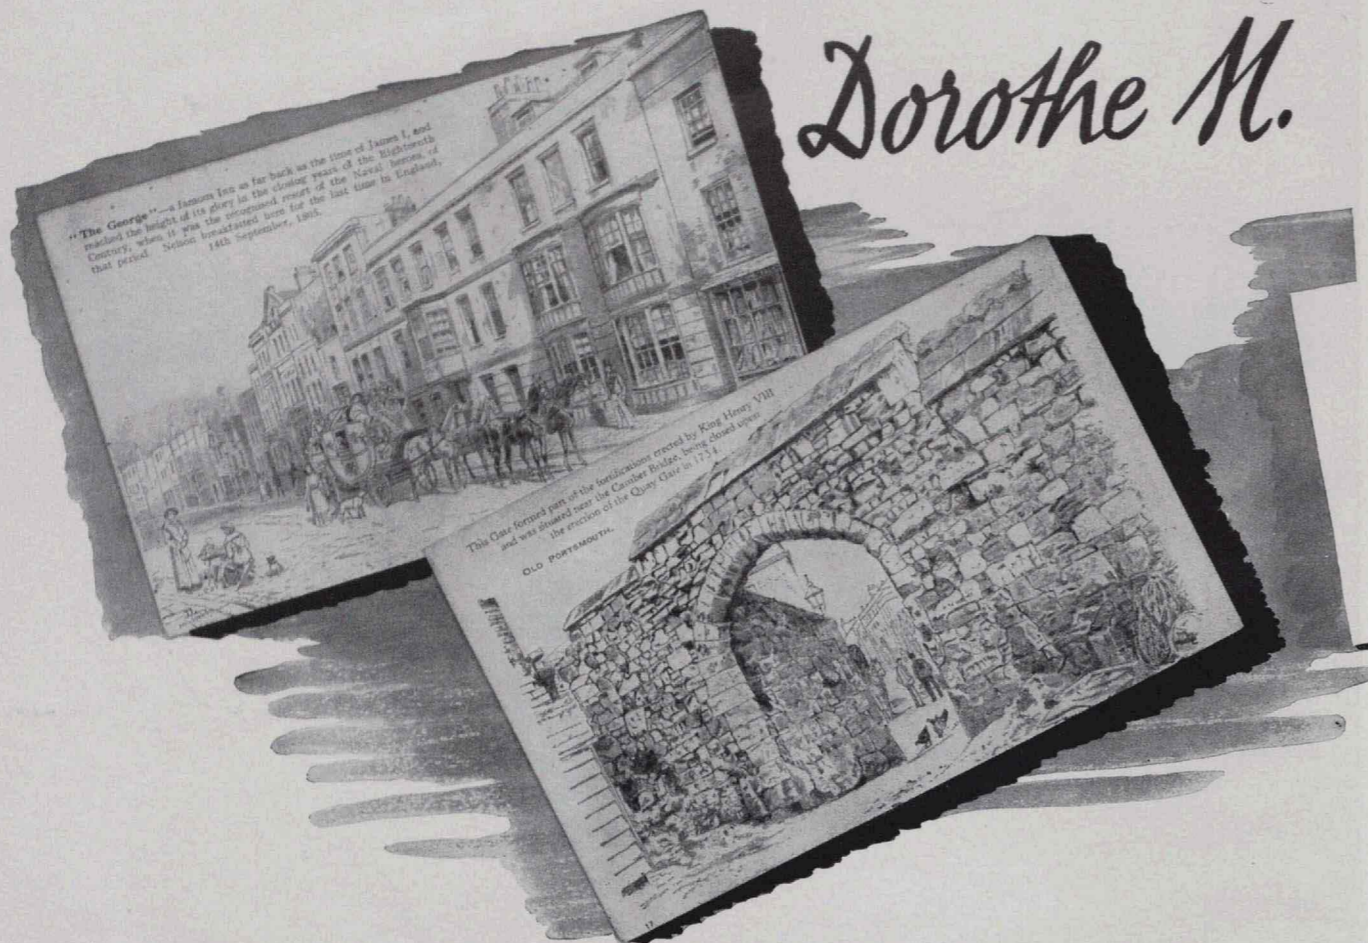 Dorothe M.
"The George"—a famous Inn as far back as the time of James I, and
reached the height of its glory in the closing years of the Eighteenth
Century, when it was the recognised resort of the Naval heroes of
that period. Nelson breakfasted here for the last time in England,
14th September, 1805.
This Gate formed part of the fortifications erected by King Henry VIII
and was situated near the Camber Bridge, being closed upon
the erection of the Quay Gate in 1734.
OLD PORTSMOUTH.